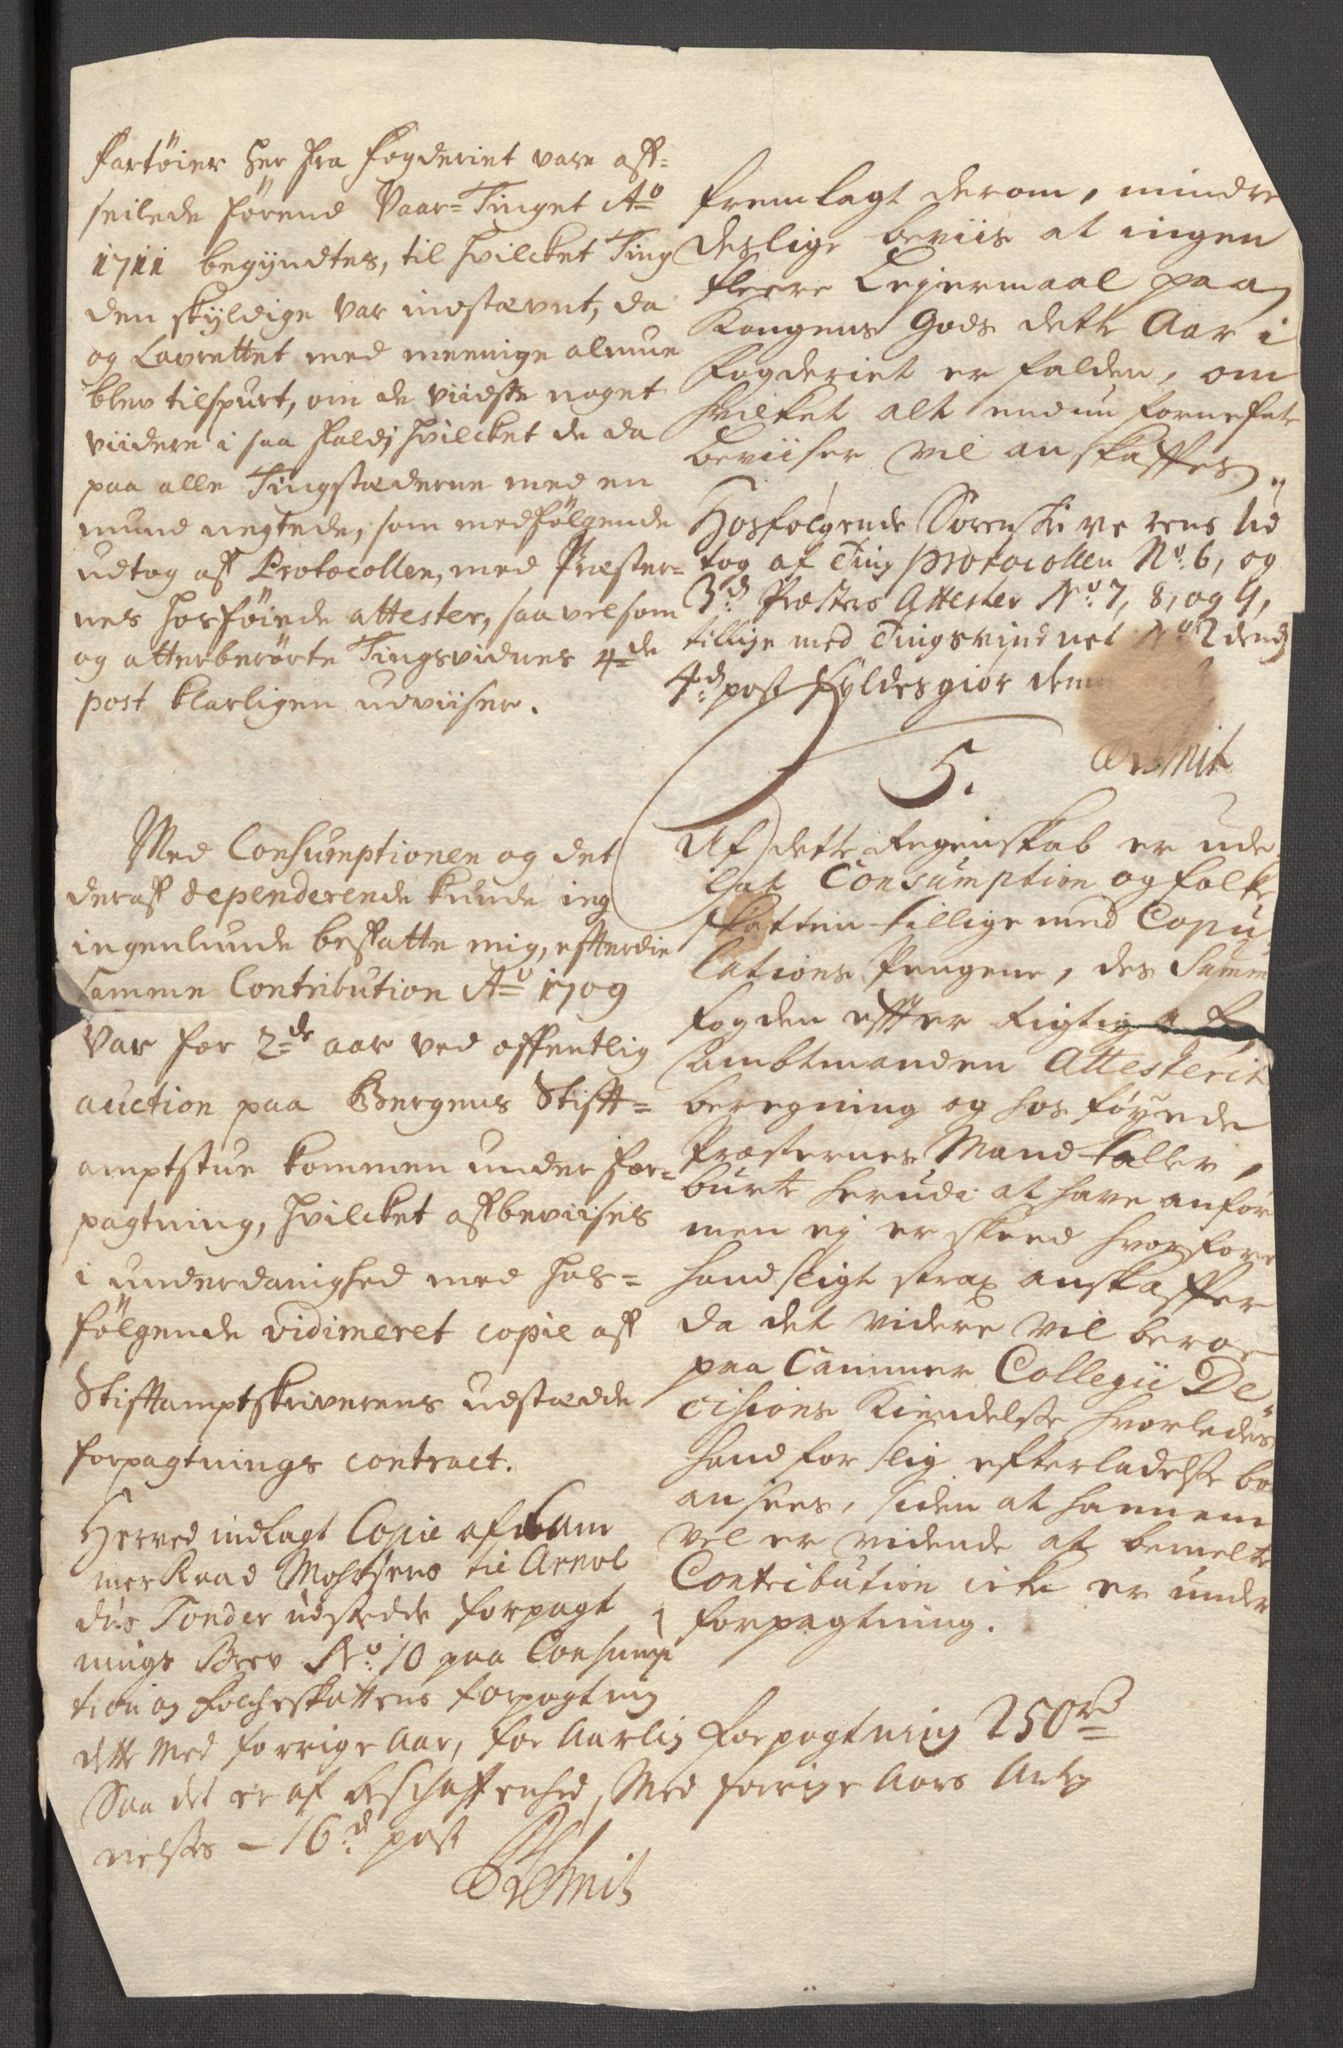 fartøier her fra fogderiet vare aff=
seilede førend Vaar=Tinget Ao
1711 begyndtes, til hvilcket Ting
den skyldige var indstævnt, da
og Laurettet med meenige almue
blev tilspurt, om de viidste noget
viidere i saa fald; hvilcket de da
paa alle Tingstæderne med en
mund negtede, som medfølgende
udtog aff Protocollen, med Præster=
nes hosføiede attester, saavelsom
og atterberørte Tingsvidnes 4de
post klarligen udviiser.
Med Consumptionen og det
deraff dependerende kunde ieg
ingenlunde befatte mig, efterdie
samme Contribution Ao 1709
var for 2de aar ved offentlig
auction paa Bergens Stift=
amptstue kommen under for=
pagtning, hvilcket affbeviises
i underdanighed med hos=
følgende vidimeret copie aff
Stiftamptskriverens udstædde
forpagtnings contract.
Herved indlagt Copie af Cam
mer Raad Mohrsens til Arnol
dus Tønder udstedde forpagt
nings Brev No. 10 paa Consump
tion og Folcheskattens forpagtning
dette med forrige Aar, for Aarlig forpagtning 250 rd
Saa det er af beschaffenhed, Med forrige Aars Anteg
nelses - 16d post
Smit
fremlagt derom, mindre
deslige beviis at ingen
fleere Leyermaal paa
Kongens Gods dette Aar i
Fogderiet er falden, om
hvilket alt endnu fornefnte
beviiser vil anskaffes
Hosfølgende Sorenskriverens Ud
tog af Ting protocollen No. 6, og
3d Præsters Attester No. 7, 8, og 9,
tillige med Tingsvindnet No 2 dend
4d post fyldesgiør
Smit
5.
Af dette Regenskab er ude
ladt Consumption og folke
skatten tillige med Copu
lations Pengene, des Samme
Fogden effter Rigtig
Ambtmanden Attesterit
beregning og hos føyede
Præsternes Mandtaller,
burte herudi at have anført
men ej er skeed hvorfore
hand sligt strax anskaffer
da det videre vil beroe
paa Cammer Collegii De=
cisions Kiendelse hvorledes
hand for slig efterladelse bør
ansees, siden at hannem
vel er vidende at bemelte
Contribution icke er under
forpagtning.